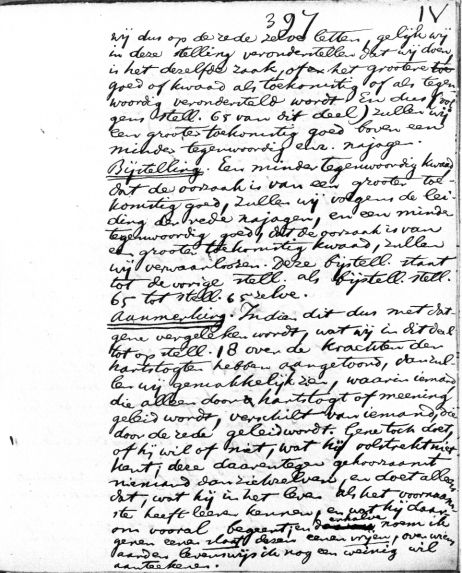 397 IV
wij dus op de rede zelve letten, gelijk wij
in deze stelling veronderstellen dat wij doen,
is het dezelfde zaak, of en het grootere
goed of kwaad als toekomstig of als tegen
woordig verondersteld wordt. En dus (vol
gens stell. 65 van dit deel) zullen wij
een grooter toekomstig goed boven een
minder tegenwoordig enz. najagen.
Bijstelling. Een minder tegenwoordig kwaad,
dat de oorzaak is van een grooter toe-
komstig goed, zullen wij volgens de lei-
ding der rede najagen, en een minder
tegenwoordig goed, dat de oorzaak is van
een grooter toekomstig kwaad, zullen
wij verwaarloozen. Deze bijstell. staat
tot de vorige stell. als bijstell. stell.
65 tot stell. 65 zelve.
Aanmerking. Indien dit dus met dat-
gene vergeleken wordt, wat wij in dit deel
tot op stell. 18 over de krachten der
hartstogten hebben aangetoond, dan zul-
len wij gemakkelijk zien, waarin iemand
die alleen door hartstogt of meening
geleid wordt, verschilt van iemand, die
door de rede geleid wordt. Gene toch doet,
of hij wil of niet, wat hij volstrekt niet
kent; deze daarentegen gehoorzaamt
niemand dan zichzelven, en doet alleen
dat, wat hij in het leven als het voornaam-
ste heeft leeren kennen, en wat hij daar-
om vooral begeert; en derhalve noem ik
genen eenen slaaf, dezen eenen vrijen, over wiens
aard en levenswijs ik nog een weinig wil
aanteekenen.